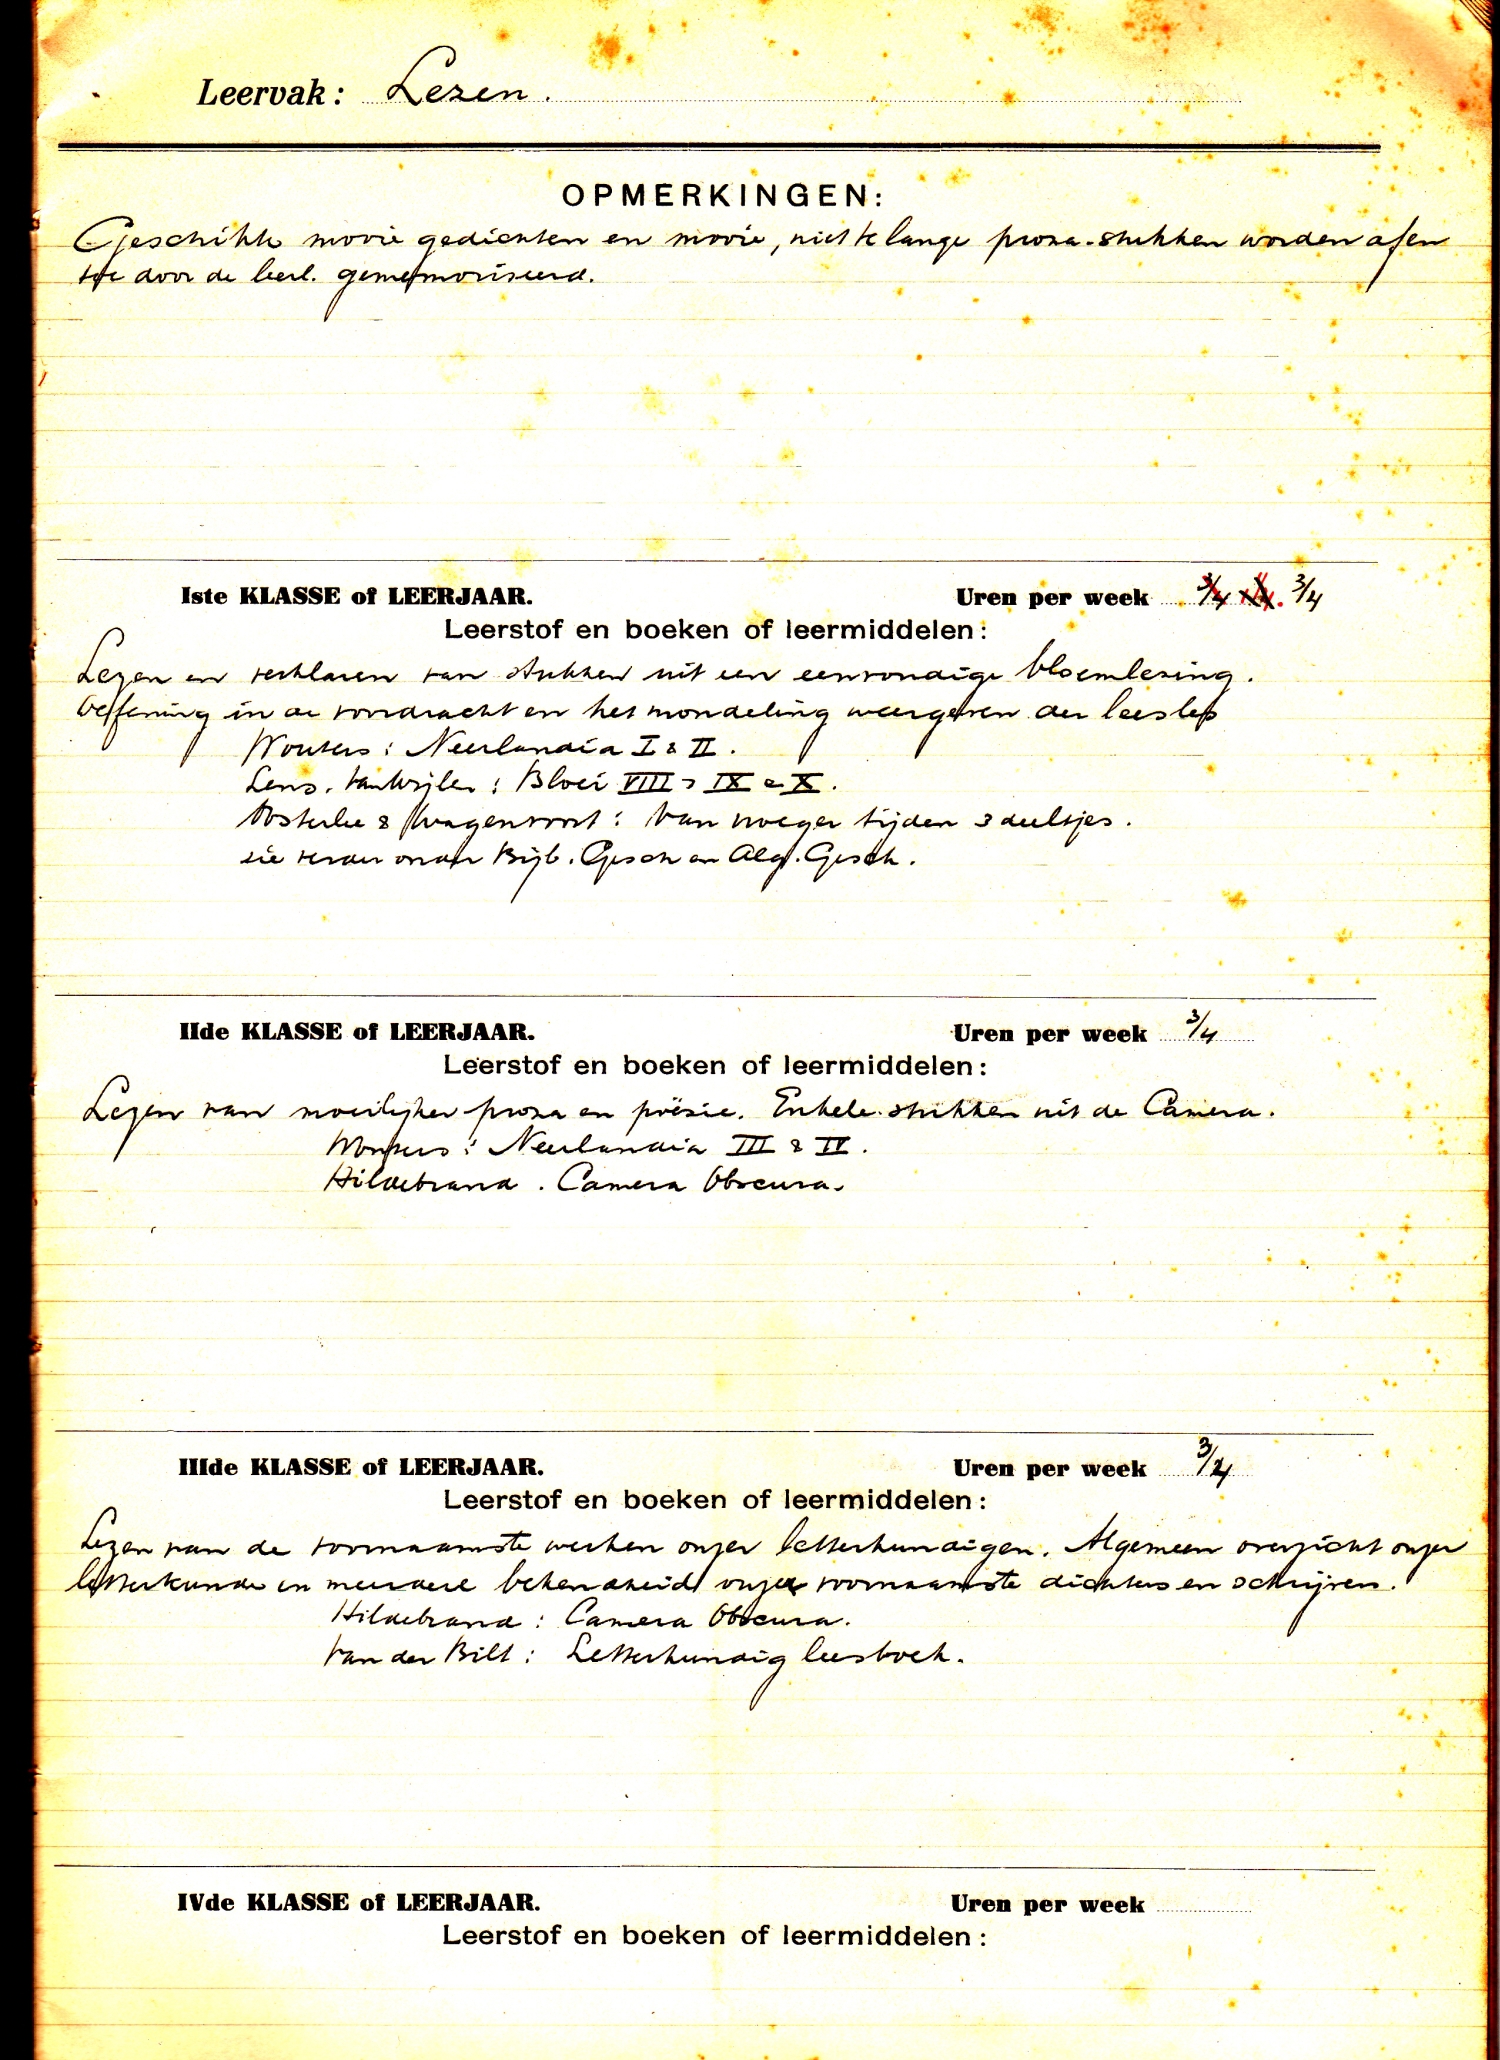 Leervak: Lezen.
OPMERKINGEN:
Geschikte mooie gedichten en mooie, niet te lange proza-stukken worden af en
toe door de leerl. gememoriseerd.
Iste KLASSE of LEERJAAR. Uren per week 3/4
Leerstof en boeken of leermiddelen:
Lezen en verklaren van stukken uit een eenvoudige bloemlezing.
Oefening in de voordracht en het mondeling weergeven der leesles
Wouters: Neerlandia I & II.
Lens. van Wijlen: Bloei VIII, IX en X.
Oosterlee & Wagenvoort: Van vroeger tijden 3 deeltjes.
zie verder onder Bijb. Gesch en Alg. Gesch.
IIde KLASSE of LEERJAAR. Uren per week 3/4
Leerstof en boeken of leermiddelen:
Lezen van moeilijker proza en poëzie. Enkele stukken uit de Camera.
Wouters: Neerlandia III & IV.
Hildebrand. Camera Obscura.
IIIde KLASSE of LEERJAAR. Uren per week 3/4
Leerstof en boeken of leermiddelen:
Lezen van de voornaamste werken onzer letterkundigen. Algemeen overzicht onzer
letterkunde en meerdere bekendheid onzer voornaamste dichters en schrijvers.
Hildebrand: Camera Obscura.
Van der Bilt: Letterkundig leesboek.
IVde KLASSE of LEERJAAR. Uren per week
Leerstof en boeken of leermiddelen: